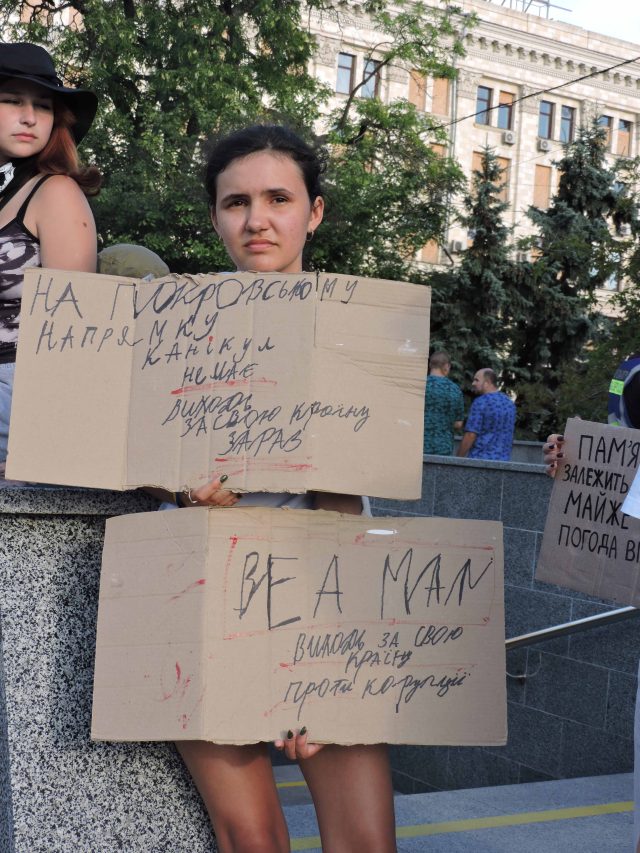 НА ПОКРОВСЬКОМУ
НАПРЯМКУ
КАНІКУЛ
НЕМАЄ
ВИХОДЬ
ЗА СВОЮ КРАЇНУ
ЗАРАЗ
BE A MAN
ВИХОДЬ ЗА СВОЮ
КРАЇНУ
ПРОТИ КОРУПЦІЇ
ПАМ'Я
ЗАЛЕЖИТЬ
МАЙЖЕ
ПОГОДА ВІ